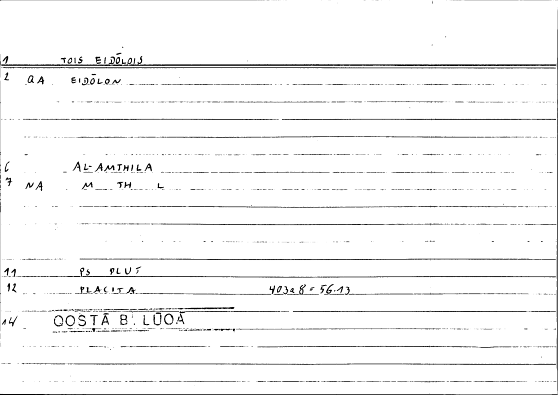 1 TOIS EIDŌLOIS
2 QA EIDŌLON
6 AL-AMTHILA
7 NA M TH L
11 PS PLUT
12 PLACITA 403a8 = 56.13
14 QOSṬĀ B. LŪQĀ